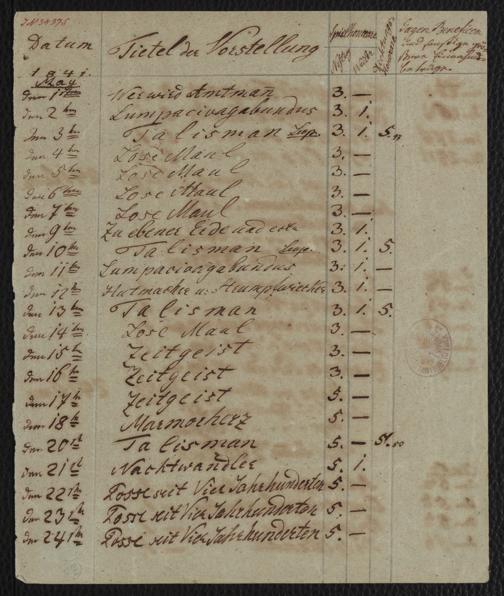 Datum Tietel der Vorstellung Spielhonorar
1841.
May
den 1ten Wer wird Amtman 3. —
den 2ten Lumpacivagabundus 3. 1.
den 3ten Talisman 3. 1. 5.
den 4ten Lose Maul 3. —
den 5ten Lose Maul 3. —
den 6ten Lose Maul 3. —
den 7ten Lose Maul 3. —
den 9ten Zu ebener Erde und erster 3. 1.
den 10ten Talisman 3. 1. 5.
den 11ten Lumpacivagabundus 3. 1. —
den 12ten Hutmacher u: Strumpfwircker 3. 1. —
den 13ten Talisman 3. 1. 5.
den 14ten Lose Maul 3. —
den 15ten Zeitgeist 3. —
den 16ten Zeitgeist 3. —
den 17ten Zeitgeist 5. —
den 18ten Marmorherz 5. —
den 20st Talisman 5. —
den 21st Nachtwandler 5. 1.
den 22st Posse seit Vier Jahrhunderten 5. —
den 23st Posse seit Vier Jahrhunderten 5. —
den 24st Posse seit Vier Jahrhunderten 5. —